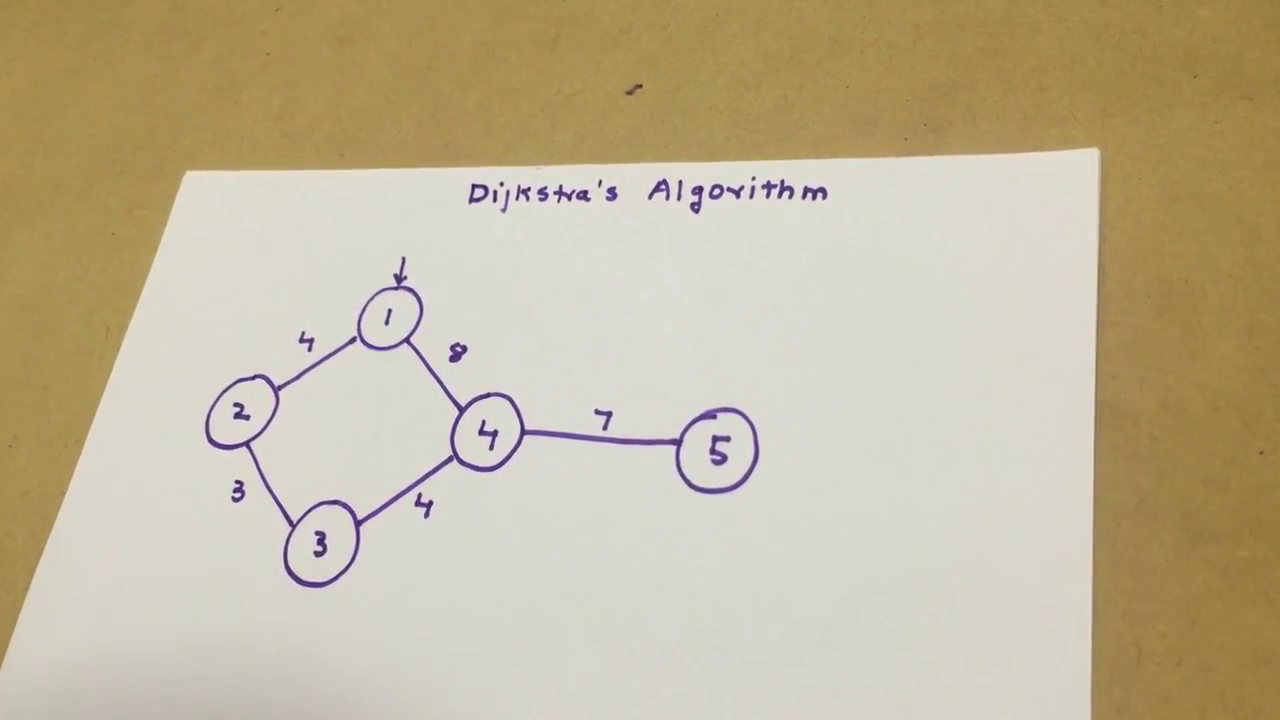 Dijkstra's Algorithm
1
4
8
2
4
7
5
3
4
3